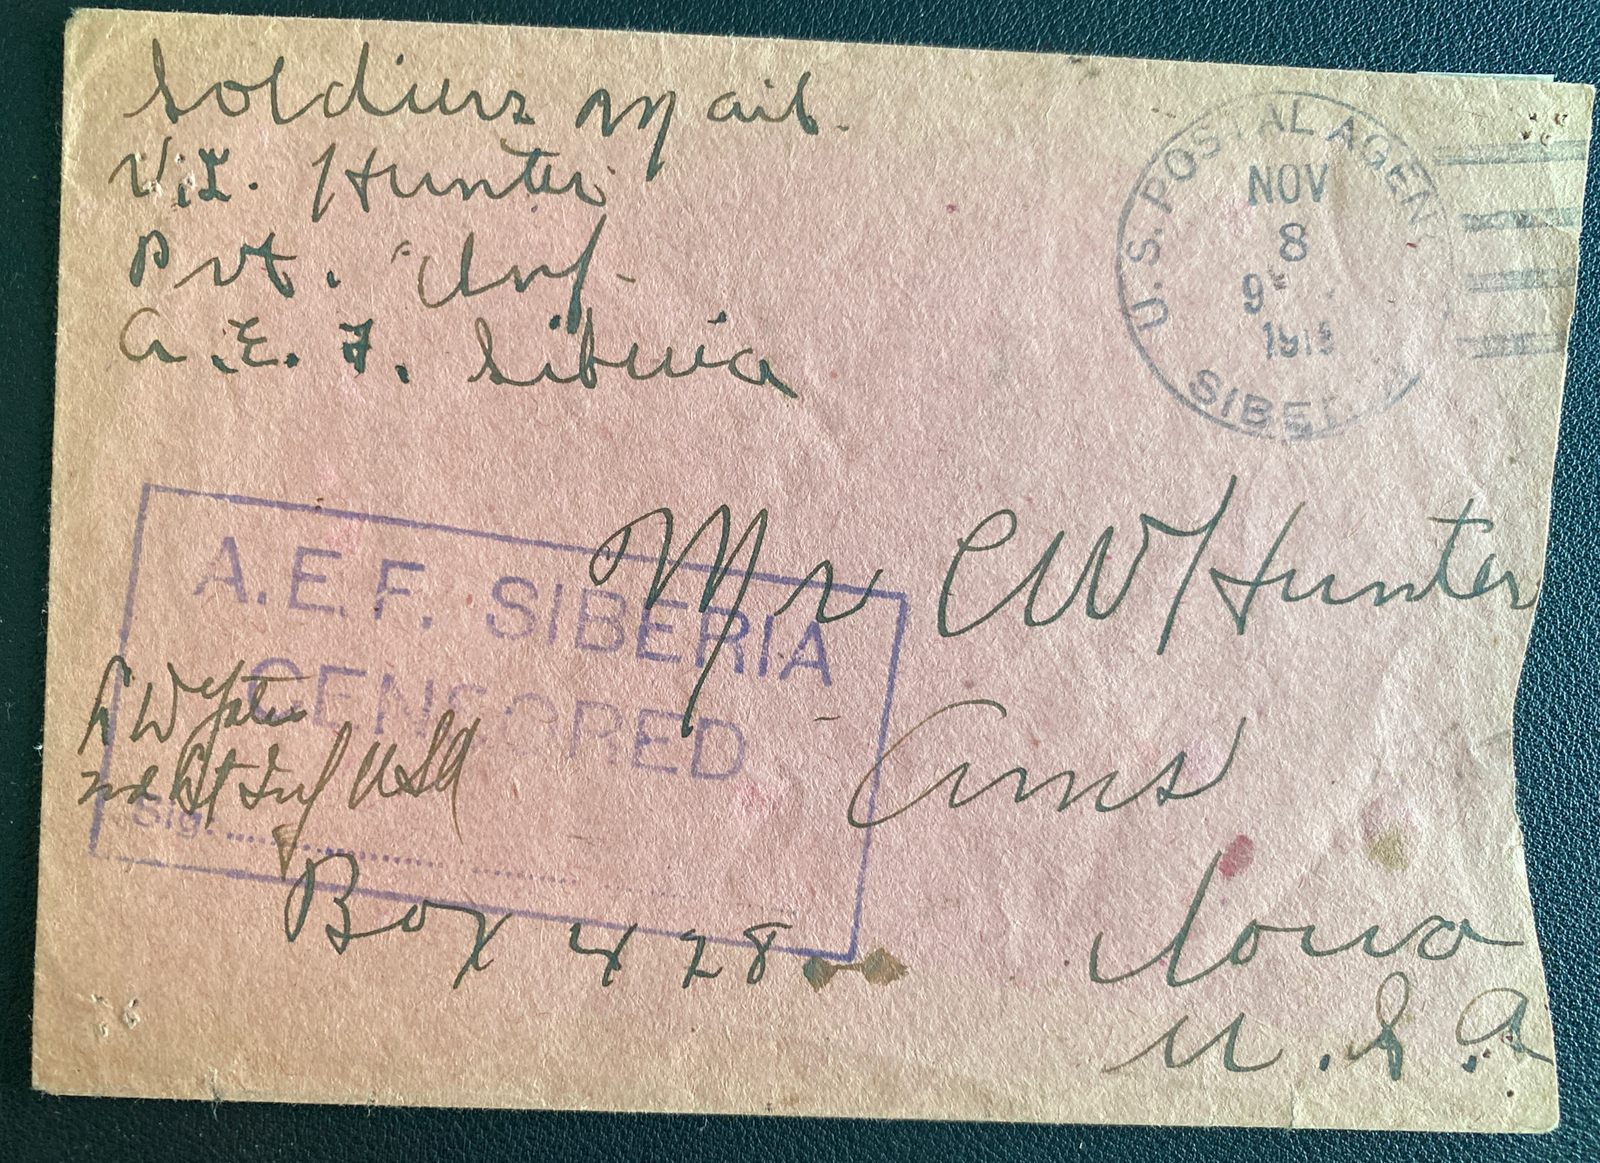 Soldiers Mail.
V.L. Hunter
Pvt. Inf.
A.E.F. Siberia
U.S. POSTAL AGEN
NOV
8
9
SIBE
Mr CW Hunter
A.E.F. SIBERIA
CENSORED
W Yates
2nd Lt Inf USA
Sig.
Ames
Box 428
Iowa
U.S.A